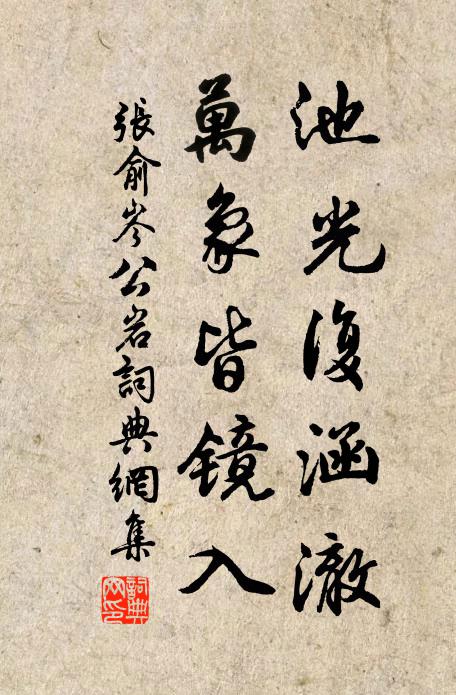 池光復涵澈
萬象皆鏡入
張俞岑公岩詞典網集
詞典网印